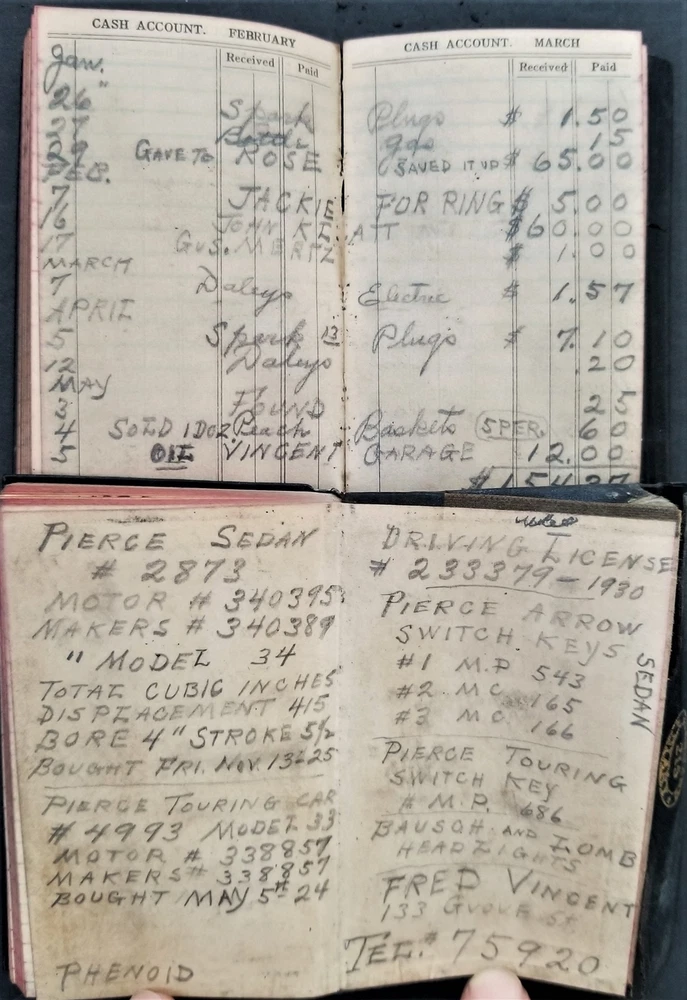 CASH ACCOUNT. FEBRUARY
Received Paid
CASH ACCOUNT. MARCH
Received Paid
Jan.
26 " Spark Plugs $ 1.50
27 gas 15
29 GAVE TO ROSE (SAVED IT UP $ 65.00
FEB.
7 JACKIE FOR RING $ 5.00
16 JOHN $60.00
17 GUS. MERTZ $ 1.00
MARCH
7 Daleys Electric $ 1.57
APRIL
5 Spark 13 Plugs $ 7.10
12 Daleys .20
MAY
3 FOUND 25
4 SOLD 1 DOZ Peach Baskets 5 PER. 60
5 OIL VINCENT GARAGE 12.00
$154.37
PIERCE SEDAN
# 2873
MOTOR # 340395
MAKERS # 340389
" MODEL 34
TOTAL CUBIC INCHES
DISPLACEMENT 415
BORE 4" STROKE 5½
BOUGHT FRI. NOV. 13-25
PIERCE TOURING CAR
# 4993 MODEL 33
MOTOR # 338857
MAKERS # 338857
BOUGHT MAY 5th 24
PHENOID
DRIVING LICENSE
# 233379 - 1930
PIERCE ARROW
SWITCH KEYS
SEDAN
#1 M.P 543
#2 MC 165
#3 MC 166
PIERCE TOURING
SWITCH KEY
# M.P. 686
BAUSCH AND LOMB
HEADLIGHTS
FRED VINCENT
133 Grove St
TEL.# 75920